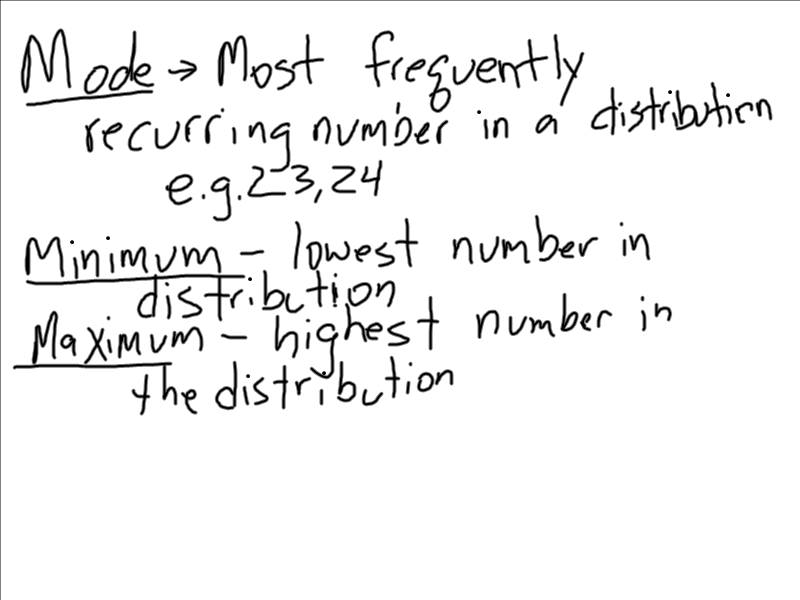 Mode → Most frequently
recurring number in a distribution
e.g. 23, 24
Minimum - lowest number in
distribution
Maximum - highest number in
the distribution